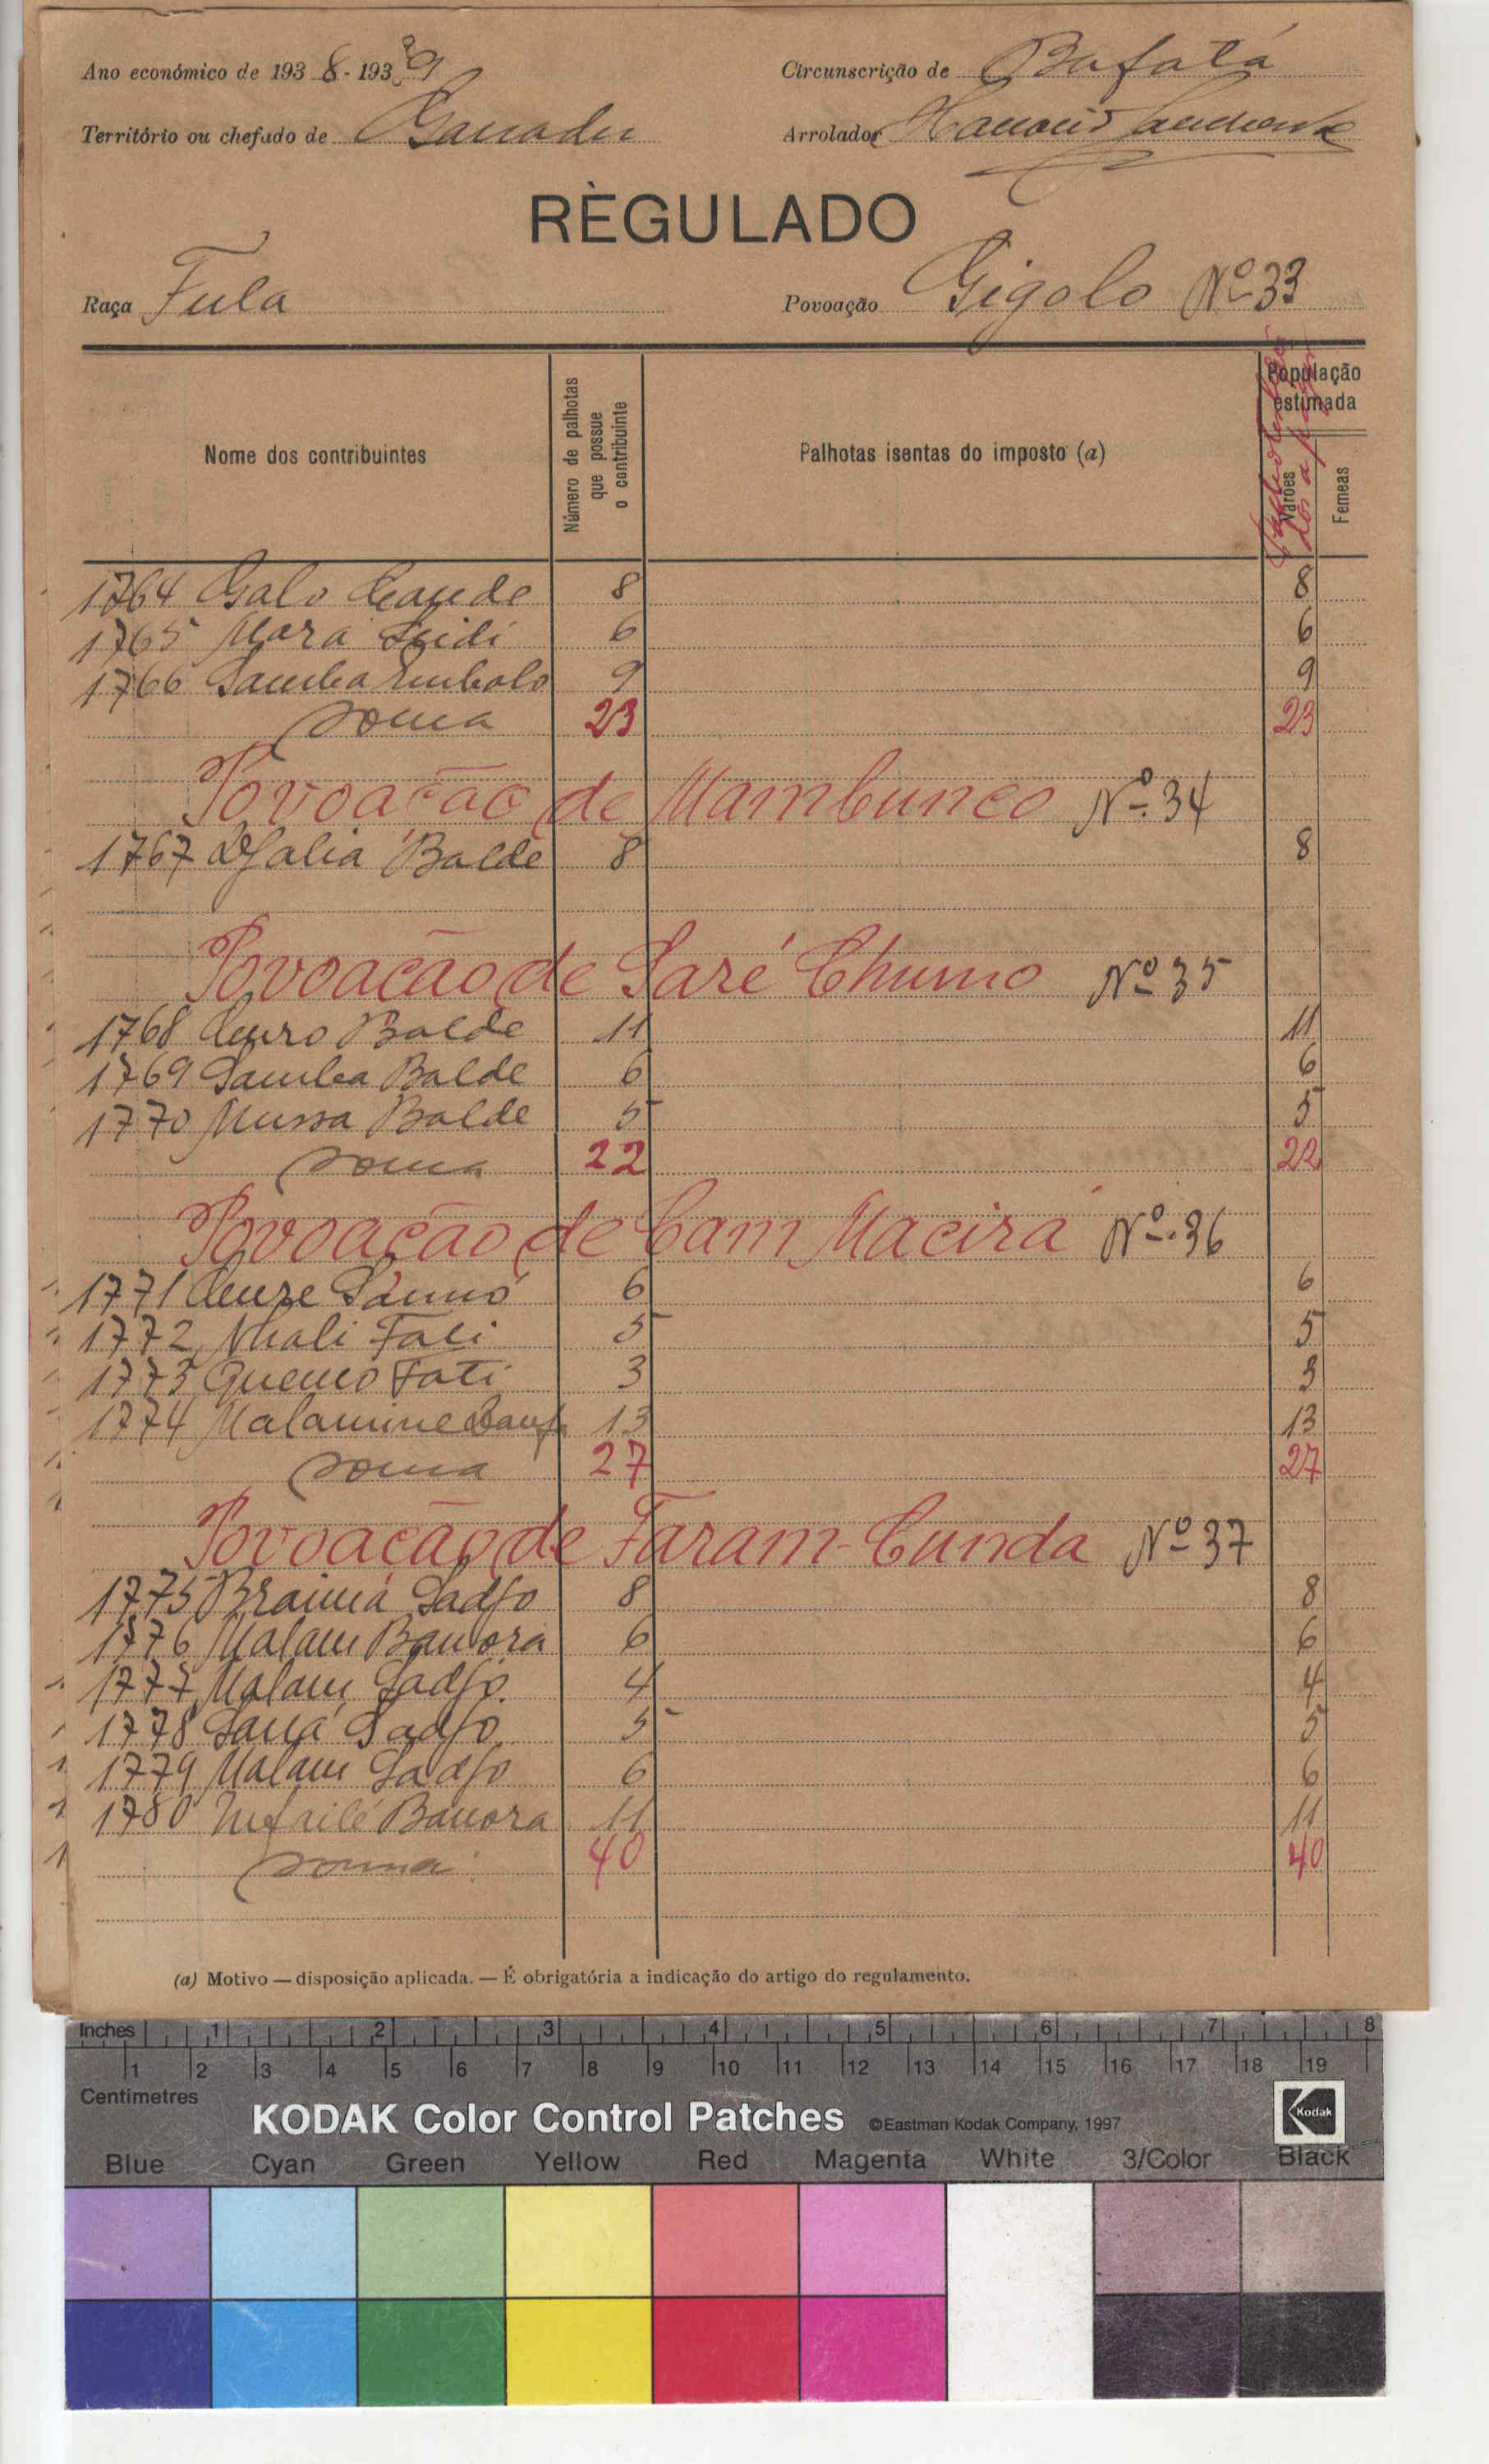 Ano económico de 1938-1939
Circunscrição de Bafatá
Território ou chefado de Ganadu
Arrolador
RÈGULADO
Raça Fula
Povoação Gigolo Nº 33
Nome dos contribuintes
Número de palhotas que possue o contribuinte
Palhotas isentas do imposto (a)
População estimada
Varões
Femeas
1764 Galo Cande 8 8
1765 Mara Seidi 6 6
1766 Samba Embalo 9 9
Soma 23 23
Povoação de Mambunco Nº 34
1767 Djalia Balde 8 8
Povoação de Saré Chumo Nº 35
1768 Balde 11 11
1769 Samba Balde 6 6
1770 Mussa Balde 5 5
Soma 22 22
Povoação de Cam Macirá Nº 36
1771 6 6
1772 Nhali Fati 5 5
1773 Quemo Fati 3 3
1774 Malamine 13 13
Soma 27 27
Povoação de Faram-Cunda Nº 37
1775 Braima Sadjo 8 8
1776 Malam Bamora 6 6
1777 Malam Sadjo 4 4
1778 Sadjo 5 5
1779 Malam Sadjo 6 6
1780 11 11
Soma 40 40
(a) Motivo — disposição aplicada. — É obrigatória a indicação do artigo do regulamento.
Inches 1 2 3 4 5 6 7 8
1 2 3 4 5 6 7 8 9 10 11 12 13 14 15 16 17 18 19
Centimetres
KODAK Color Control Patches ©Eastman Kodak Company, 1997 Kodak
Blue Cyan Green Yellow Red Magenta White 3/Color Black